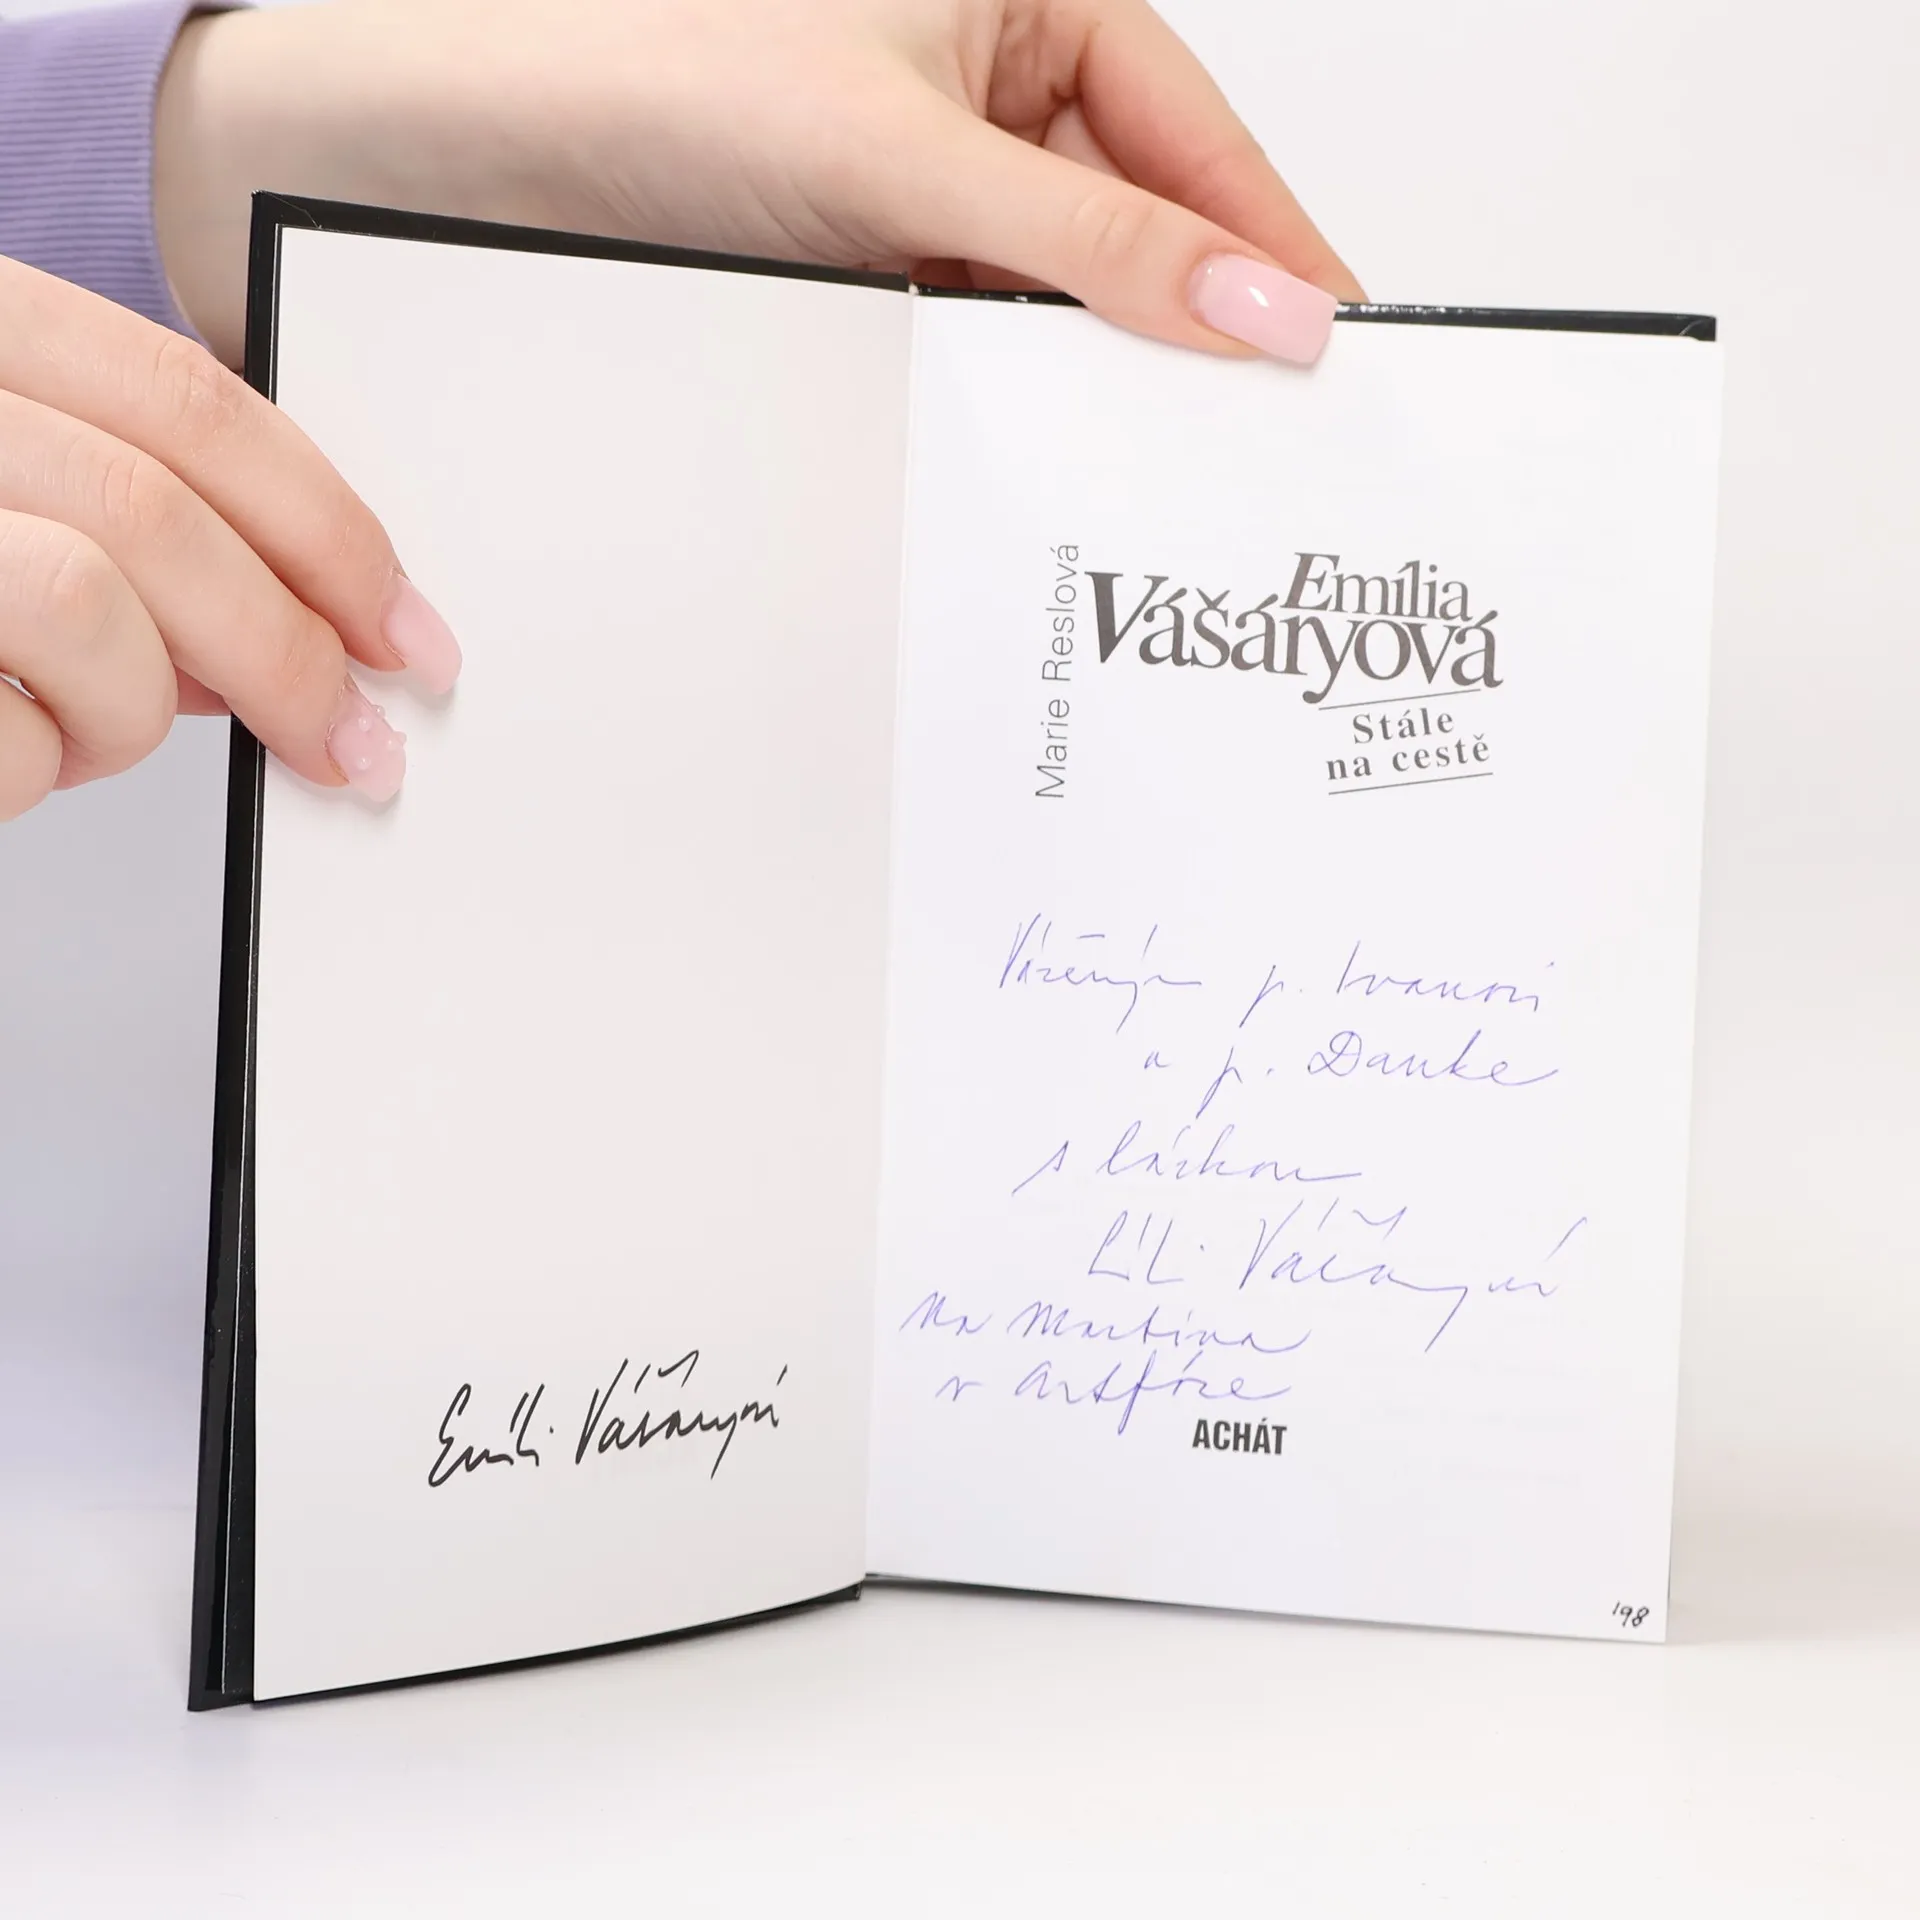 Emíli Vášáryová
Marie Reslová
Emília
Vášáryová
Stále
na cestě
Váženým p. Ivanovi
a p. Danke
s láskou
Lili Vášáryová
Na Martina
v Artfóre
ACHÁT
'98